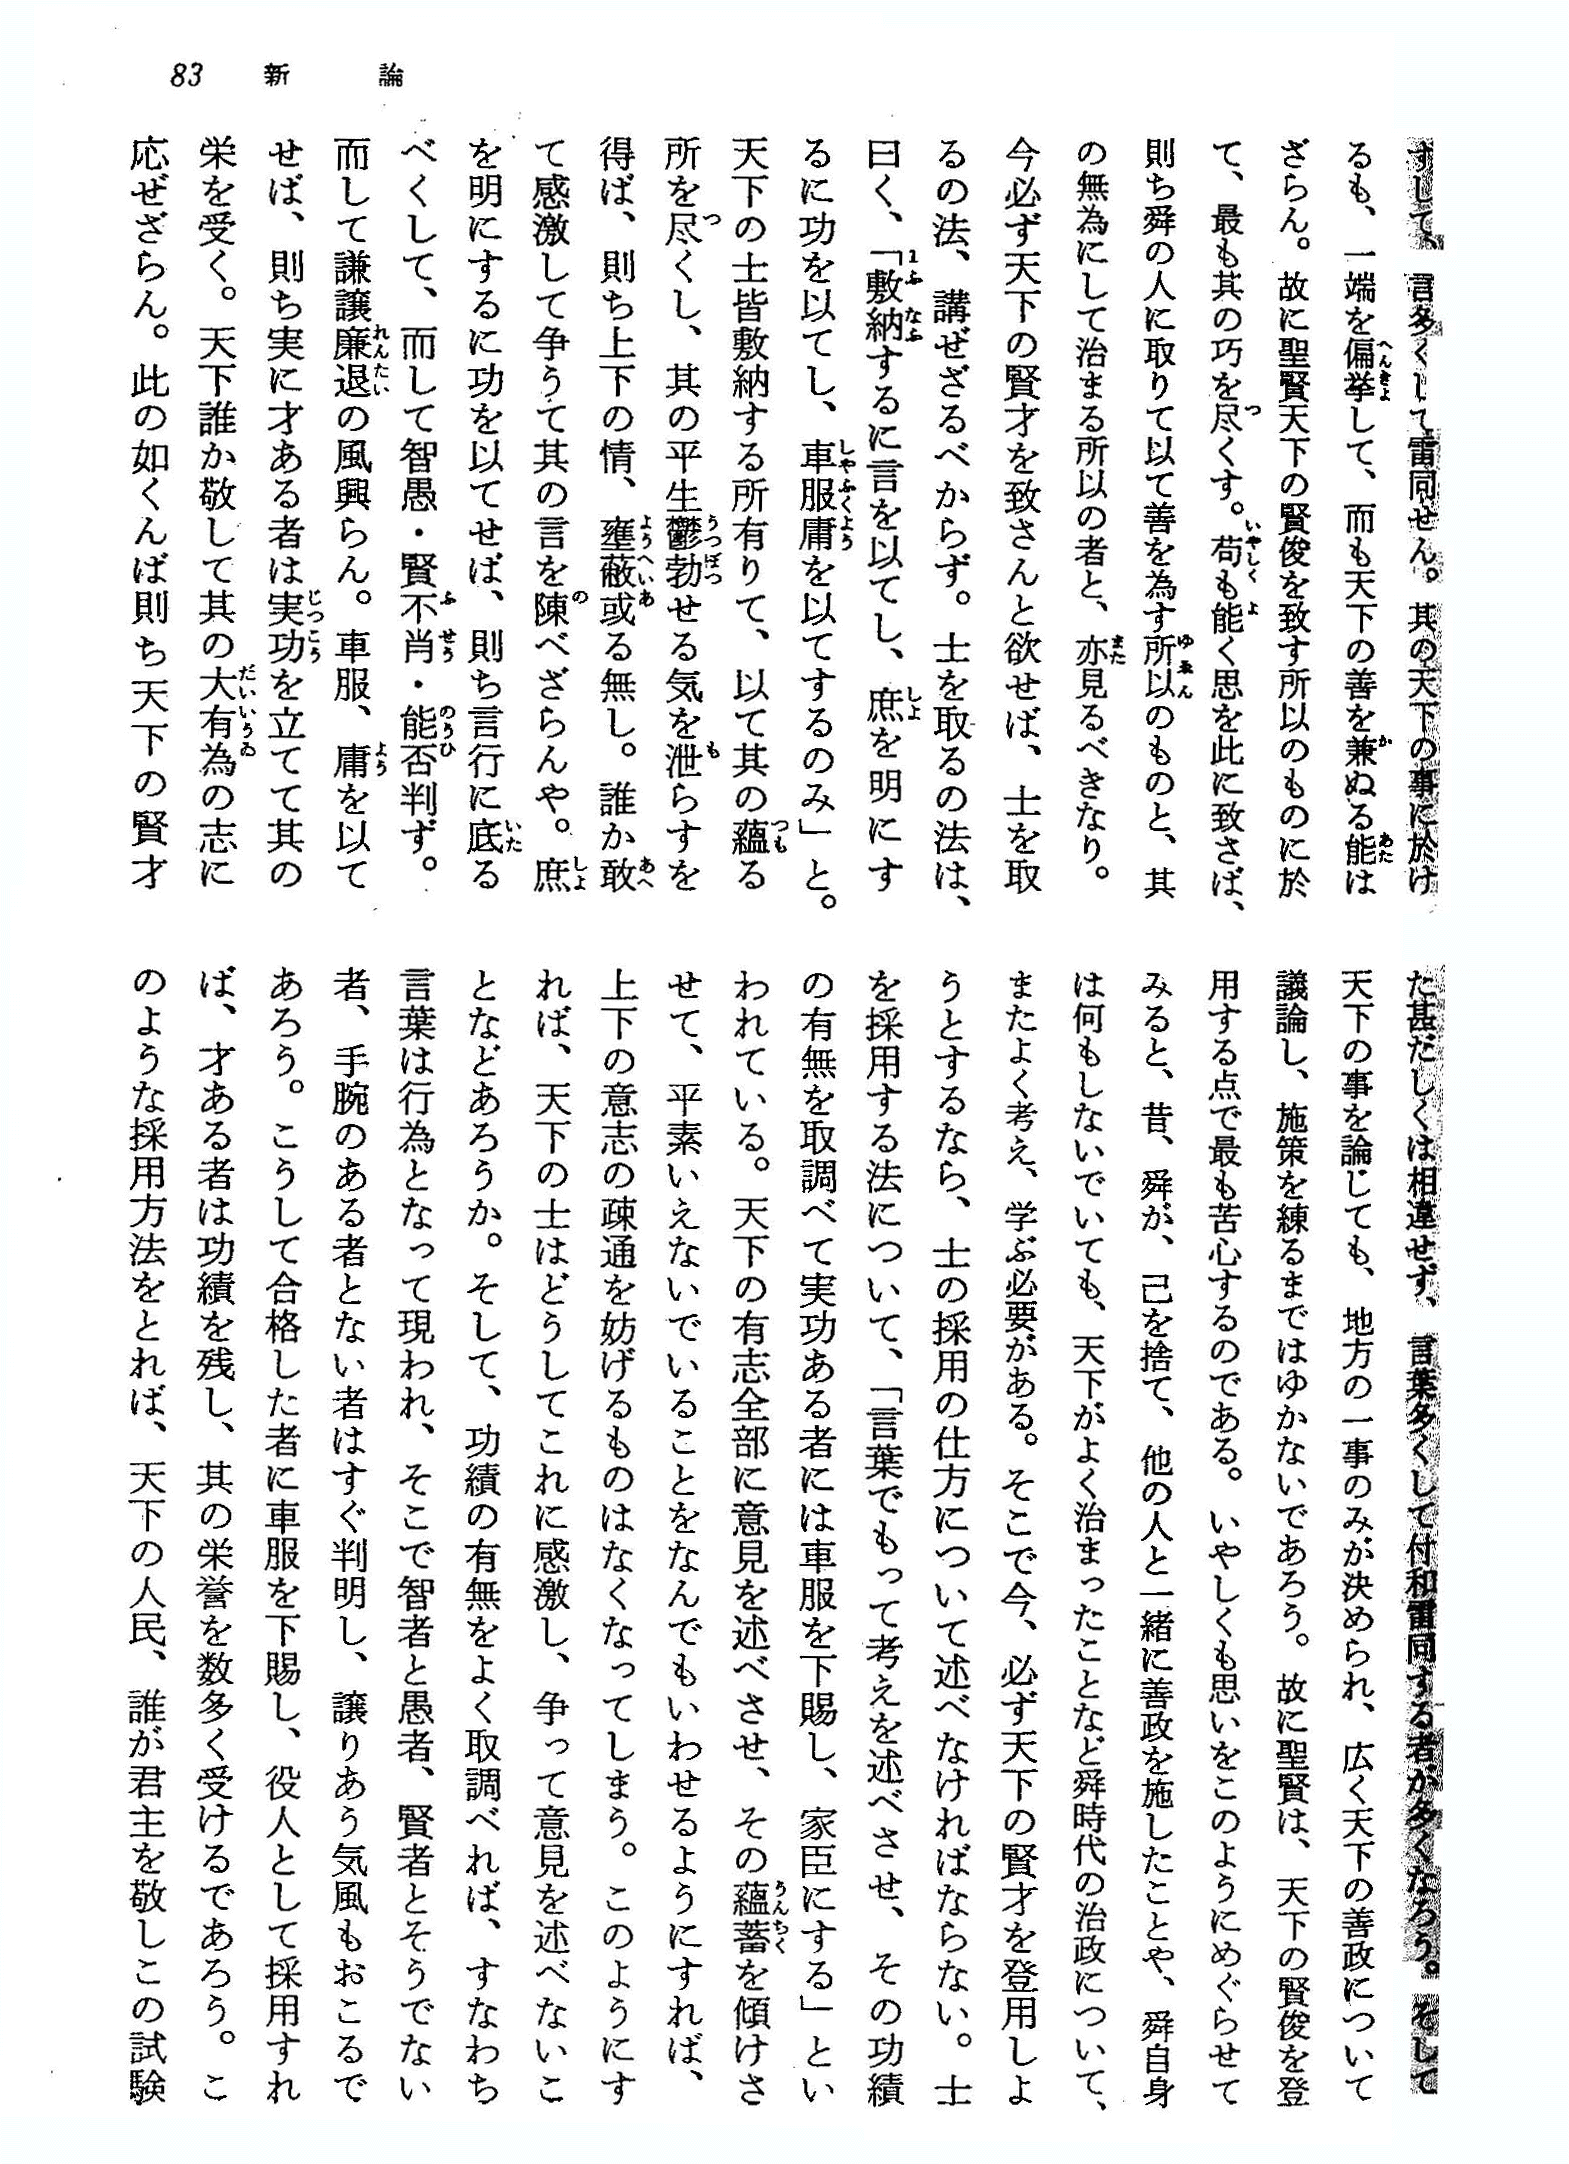 83 新論
ずして、言多くして雷同せん。其の天下の事に於け
るも、一端を偏挙して、而も天下の善を兼ぬる能は
ざらん。故に聖賢天下の賢俊を致す所以のものに於
て、最も其の巧を尽くす。苟も能く思を此に致さば、
則ち舜の人に取りて以て善を為す所以のものと、其
の無為にして治まる所以の者と、亦見るべきなり。
今必ず天下の賢才を致さんと欲せば、士を取
るの法、講ぜざるべからず。士を取るの法は、
曰く、「敷納するに言を以てし、庶を明にす
るに功を以てし、車服庸を以てするのみ」と。
天下の士皆敷納する所有りて、以て其の蘊る
所を尽くし、其の平生鬱勃せる気を泄らすを
得ば、則ち上下の情、壅蔽或る無し。誰か敢
て感激して争うて其の言を陳べざらんや。庶
を明にするに功を以てせば、則ち言行に底る
べくして、而して智愚・賢不肖・能否判ず。
而して謙譲廉退の風興らん。車服、庸を以て
せば、則ち実に才ある者は実功を立てて其の
栄を受く。天下誰か敬して其の大有為の志に
応ぜざらん。此の如くんば則ち天下の賢才
た甚だしくは相違せず、言葉多くして付和雷同する者が多くなろう。そして
天下の事を論じても、地方の一事のみが決められ、広く天下の善政について
議論し、施策を練るまではゆかないであろう。故に聖賢は、天下の賢俊を登
用する点で最も苦心するのである。いやしくも思いをこのようにめぐらせて
みると、昔、舜が、己を捨て、他の人と一緒に善政を施したことや、舜自身
は何もしないでいても、天下がよく治まったことなど舜時代の治政について、
またよく考え、学ぶ必要がある。そこで今、必ず天下の賢才を登用しよ
うとするなら、士の採用の仕方について述べなければならない。士
を採用する法について、「言葉でもって考えを述べさせ、その功績
の有無を取調べて実功ある者には車服を下賜し、家臣にする」とい
われている。天下の有志全部に意見を述べさせ、その蘊蓄を傾けさ
せて、平素いえないでいることをなんでもいわせるようにすれば、
上下の意志の疎通を妨げるものはなくなってしまう。このようにす
れば、天下の士はどうしてこれに感激し、争って意見を述べないこ
となどあろうか。そして、功績の有無をよく取調べれば、すなわち
言葉は行為となって現われ、そこで智者と愚者、賢者とそうでない
者、手腕のある者とない者はすぐ判明し、譲りあう気風もおこるで
あろう。こうして合格した者に車服を下賜し、役人として採用すれ
ば、才ある者は功績を残し、其の栄誉を数多く受けるであろう。こ
のような採用方法をとれば、天下の人民、誰が君主を敬しこの試験